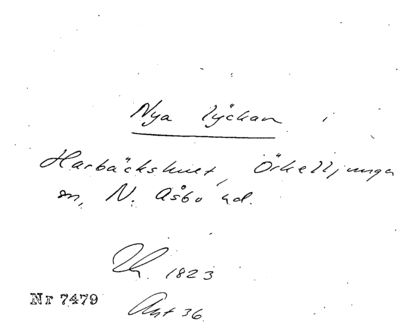 Nya lyckan i
Harbäckshult, Örkelljunga
sn, N. Åsbo hd.
1823
Nr 7479
Akt 36